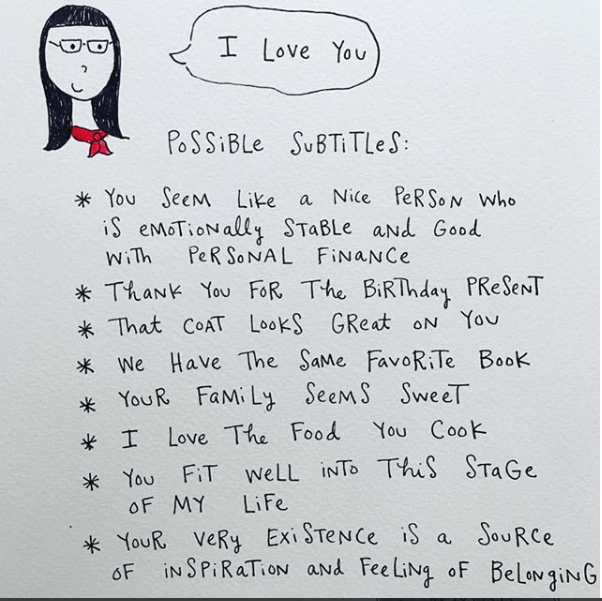 I Love You
Possible Subtitles:
* You Seem Like a Nice Person who
is emotionally Stable and Good
with Personal Finance
* Thank You For The Birthday Present
* That Coat Looks Great on You
* We Have The Same Favorite Book
* Your Family Seems Sweet
* I Love The Food You Cook
* You Fit well into This Stage
of My Life
* Your very Existence is a Source
of inspiration and Feeling of Belonging